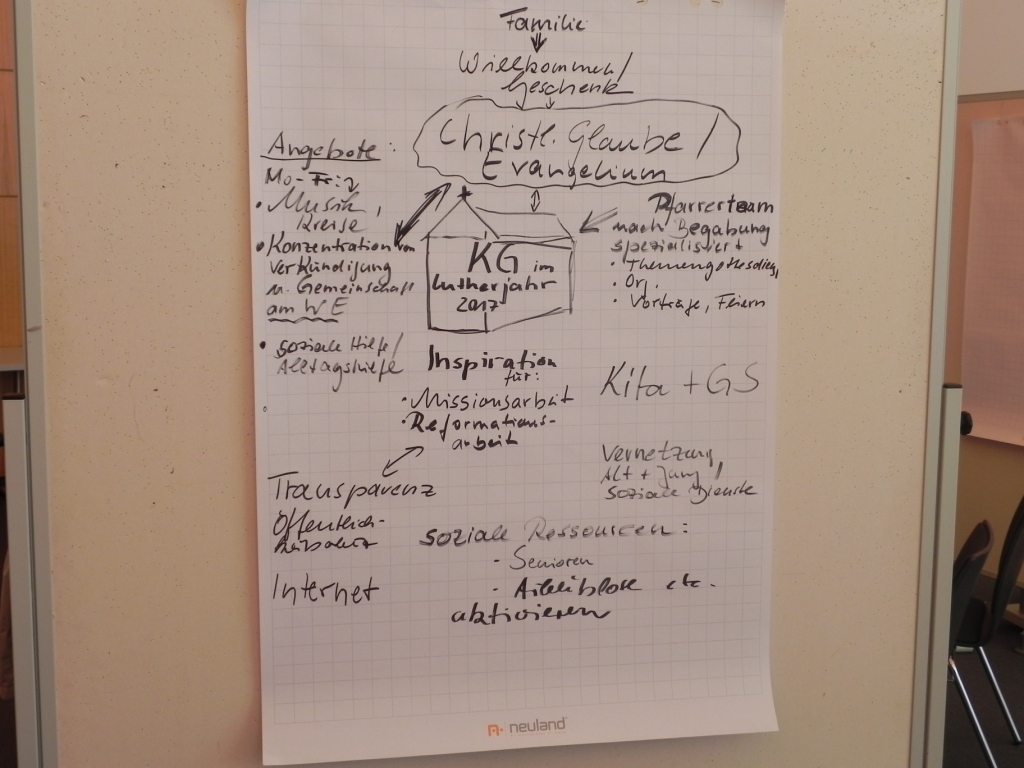 Familie
Willkommen/
Geschenk
Christl. Glaube/
Evangelium
Angebote:
Mo-Fr:
• Musik,
kreise
• Konzentration von
Verkündigung
u. Gemeinschaft
am WE
• soziale Hilfe/
Alltagshilfe
KG im
Lutherjahr
2017
Pfarrerteam
nach Begabung
spezialisiert
• Themengottesdienst
• Vorträge, Feiern
Inspiration
für:
• Missionsarbeit
• Reformations-
arbeit
Kita + GS
Vernetzung
Alt + Jung /
Soziale Dienste
Transparenz
Öffentlich-
keitsarbeit
Internet
soziale Ressourcen:
- Senioren
- Arbeitslose etc.
aktivieren
neuland